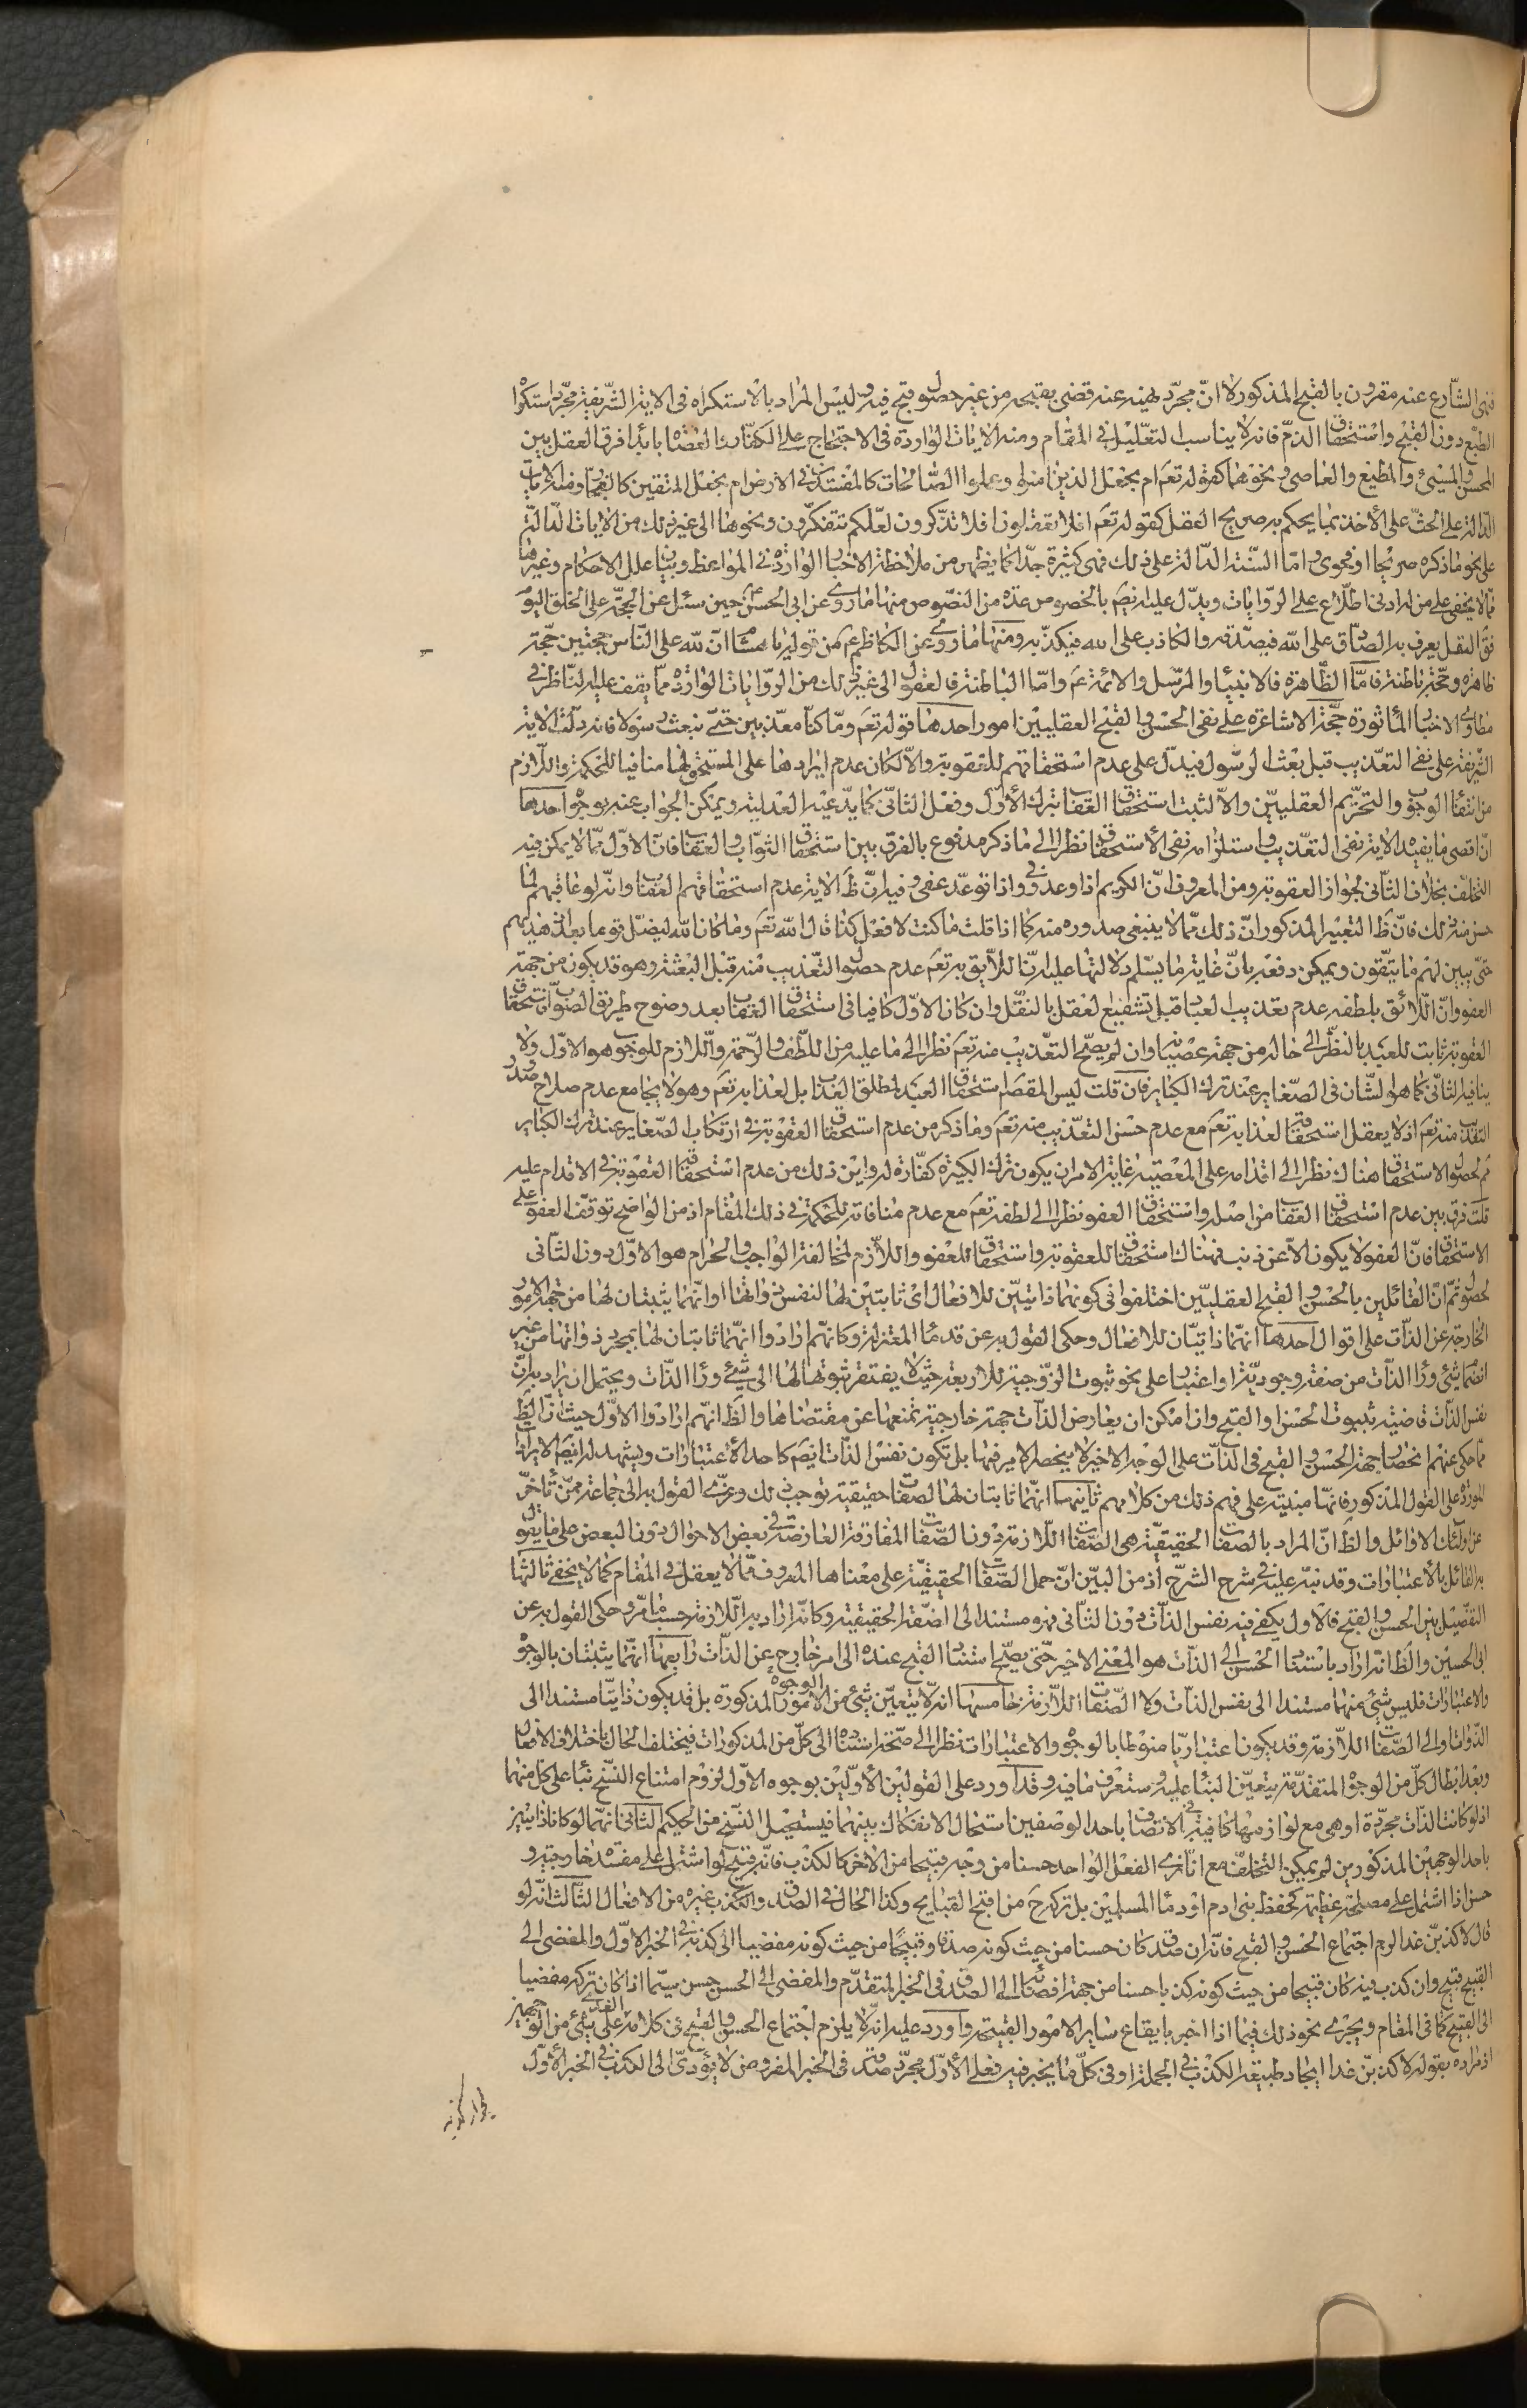 فنهى الشّارع عنه مقرون بالقبح المذكور لا انّ مجرّد نهيه عنه قضى بقبحه من غير حصول قبح فيه وليس المراد بالاستكراه فى الاية الشّريفة مجرّد استكراه
الطّبع دون القبح واستحقاق الذمّ فانه لا يناسب التعّليل فى المقام ومنه الايات الواردة فى الاحتجاج على الكفّار والعصاة بابداء فرق العقل بين
المحسن والمسيئ والمطيع والعاصى ونحوهما كقوله تعم ام نجعل الذين امنوا وعملوا الصّالحات كالمفسدين فى الارض ام نجعل المتقين كالفجّار ومنه الايات
الدّالة على الحثّ على الأخذ بما يحكم به صريح العقل كقوله تعم افلا تعقلون افلا تذّكرون لعلّكم تتفكّرون ونحوها الى غير ذلك من الايات الدّالة
على نحو ما ذكره صريحا او فحوى وامّا السّنة الدّالة على ذلك فهى كثيرة جدّا كما يظهر من ملاحظة الاخبار الواردة فى المواعظ وبيان علل الاحكام وغيرها
ممّا لا يخفى على من له ادنى اطّلاع على الرّوايات ويدّل عليه ايضم بالخصوص عدة من النصّوص منها ما روى عن ابى الحسن ع حين سئل عن الحجّة على الخلق اليوم
فق العقل يعرف به الصّادق على الله فيصدّقه والكاذب على الله فيكذّبه ومنها ما روى عن الكاظم ع من قوله يا هشام انّ لله على النّاس حجتين حجّة
ظاهرة وحجّة باطنة فامّا الظّاهرة فالانبياء والرسّل والائمة ع وامّا الباطنة فالعقول الى غير ذلك من الرّوايات الواردة ممّا يقف عليه النّاظر فى
مطاوى الاخبار المأثورة حجّة الاشاعرة على نفى الحسن والقبح العقليين امور احدها قوله تعم وما كنّا معذّبين حتّى نبعث رسولا فانه دلّت الاية
الشّريفة على نفى التعّذيب قبل بعث الرسّول فيدّل على عدم استحقاقهم للعقوبة والّا لكان عدم ايرادها على المستحق لها منافيا للحكمة واللّازم
من انتفاء الوجوب والتحّريم العقلييّن والّا لثبت استحقاق العقاب بترك الأوّل وفعل الثانّى كما يدّعيه العدلية ويمكن الجواب عنه بوجوه احدها
انّ اقصى ما يفيده الاية نفى التعّذيب واستلزامه نفى الأستحقاق نظرا الى ما ذكر مدفوع بالفرق بين استحقاق الثوّاب والعقاب فانّ الاوّل ممّا لا يمكن فيه
التخلّف بخلاف الثانى لجواز العقوبة ومن المعروف انّ الكريم اذا وعد وفى واذا توعّد عفى وفيه انّ ظ الاية عدم استحقاقهم العقاب وانّه لو عاقبهم لما
حسن منه ذلك فانّ ظ التعّبير المذكور انّ ذلك ممّا لا ينبغى صدوره منه كما اذا قلت ما كنت لافعل كذا قال الله تعم وما كان الله ليضلّ قوما بعد اذ هديهم
حتّى يبين لهم ما يتقون ويمكن دفعه بانّ غاية ما يسّلم دلالتها عليه انّ اللّايق به تعم عدم حصول التّعذيب منه قبل البعثة وهو قد يكون من جهة
العفو وانّ اللّائق بلطفه عدم تعذيب العباد قبل تشفيع العقل بالنقّل وان كان الاوّل كافيا فى استحقاق العقاب بعد وضوح طريق الصّواب فاستحقاق
العقوبة ثابت للعبد بالنظّر الى حاله من جهة عصيانه وان لم يصّح التعّذيب منه تعم نظرا الى ما عليه من اللّطف والرّحمة واللّازم للوجوب هو الاوّل ولا
ينافيه الثانّى كما هو الشّان فى الصّغاير عند ترك الكباير فان قلت ليس المقصم استحقاق العبد لمطلق العذاب بل لعذابه تعم وهو لا يجامع عدم صلاح صدور
التعّذيب منه تعم اذ لا يعقل استحقاق لعذابه تعم مع عدم حسن التعّذيب منه تعم وما ذكر من عدم استحقاق العقوبة فى ارتكاب الصّغاير عند ترك الكباير
ثم لحصول الاستحقاق هناك نظرا الى اقدامه على المعصية غاية الامر ان يكون ترك الكبيرة كفّارة له واين ذلك من عدم استحقاق العقوبة فى الاقدام عليه
قلت فرق بين عدم استحقاق العقاب من اصله واستحقاق العفو نظرا الى لطفه تعم مع عدم منافاته للحكمة فى ذلك المقام اذ من الواضح توقّف العفو على
الاستحقاق فانّ العفو لا يكون الّا عن ذنب فهناك استحقاق للعقوبة واستحقاق للعفو واللّازم لمخالفة الواجب والحرام هو الاوّل دون الثّانى
لحصول ثمّ انّ القائلين بالحسن والقبح العقلييّن اختلفوا فى كونهما ذاتييّن للافعال اى ثابتين لها لنفس ذواتها او انّهما يثبتان لها من جهة الامور
الخارجة عن الذّات على اقوال احدها انهّما ذاتيّان للافعال وحكى القول به عن قدماء المعتزلة وكانّهم ارادوا انهّما ثابتان لها بمجرد ذواتها من غير
انضمام شئ وراء الذّات من صفة وجوديّة او اعتبار على نحو ثبوت الزّوجية للاربعة حيث لا يفتقر ثبوتها لها الى شئ وراء الذّات ويحتمل ان يراد به انّ
نفس الذّات قاضية بثبوت الحسن والقبح وان امكن ان يعارض الذّات جهة خارجية تمنعها عن مقتضاها والظ انهّم ارادوا الاوّل حيث انّ الظ
ممّا حكى عنهم انحصار جهة الحسن والقبح فى الذّات على الوجه الاخير لا ينحصر الامر فيها بل تكون نفس الذّات ايضم كاحد الأعتبارات ويشهد له ايضم الايراد
المورد على القول المذكور فانهّا مبنية على فهم ذلك من كلامهم ثانيها انهّما ثابتان لها لصفات حقيقية توجب ذلك وعزى القول به الى جماعة ممّن تأخرّ
عن اولئك الاوائل والظ انّ المراد بالصفات الحقيقيّة هى الصّفات اللّازمة دون الصّفات المفارقة العارضة فى بعض الاحوال دون البعض على ما يقول
به القائل بالأعتبارات وقد نبّه عليه فى شرح الشرح اذ من البيّن انّ حمل الصّفات الحقيقيّة على معناها المعروف ممّا لا يعقل فى المقام كما لا يخفى ثالثها
التفصّيل بين الحسن والقبح فالاول يكفى فيه نفس الذّات دون الثّانى فهو مستند الى صفة الحقيقية وكانّه اراد به اللّازمة حسبما مرّ وحكى القول به عن
ابى الحسين والظ انه اراد باستناد الحسن الى الذّات هو المعنى الاخير حتّى يصّح استناد القبح عنده الى امر خارج عن الذّات رابعها انهّما يثبتان بالوجوه
والاعتبارات فليس شئ منهما مستندا الى نفس الذّات ولا الصّفات اللّازمة خامسها انه لا يتعيّن شئ من الامور الوجوه المذكورة بل قد يكون ذاتيّا مستندا الى
الذّوات او الى الصّفات اللّازمة وقد يكون اعتباريّا منوطا بالوجوه والاعتبارات نظرا الى صحّة استناده الى كلّ من المذكورات فيختلف الحال باختلاف الافعال
وبعد ابطال كلّ من الوجوه المتقدّمة يتعيّن البناء عليه وستعرف ما فيه وقد اورد على القولين الأوّلين بوجوه الاوّل لزوم امتناع النسّخ بناء على كلّ منهما
اذ لو كانت الذّات مجرّدة او هى مع لوازمها كافية فى الاتصّاف باحد الوصفين استحال الانفكاك بينهما فيستحيل النسّخ من الحكيم الثّانى انهّما لو كانا ذاتيين
باحد الوجهين المذكورين لم يمكن التخلّف مع انّا نرى الفعل الواحد حسنا من وجه قبيحا من الاخر كالكذب فانّه قبيح لو اشتمل على مفسدة خارجية و
حسن اذا اشتمل على مصلحة عظيمة كحفظ بنى ادم او دماء المسلمين بل تركه ح من اقبح القبايح وكذا الحال فى الصّدق والكذب وغيره من الافعال الثّالث انّه لو
قال لاكذبّن غدا لزم اجتماع الحسن والقبح فانّه ان صدق كان حسنا من حيث كونه صدقا وقبيحا من حيث كونه مفضيا الى كذبه فى الخبر الاوّل والمفضى الى
القبيح قبيح وان كذب فيه كان قبيحا من حيث كونه كذبا حسنا من جهة افضائه الى الصّدق فى الخبر المتقدّم والمفضى الى الحسن حسن سيّما اذا كان تركه مفضيا
الى القبيح كما فى المقام ويجرى نحو ذلك فيما اذا اخبر بايقاع ساير الامور القبيحة واورد عليه انّه لا يلزم اجتماع الحسن والقبح فى كلامه الغدى على شئ من الوجهين
اذ مراده بقوله لاكذبّن غدا ايجاد طبيعة الكذب فى الجملة او فى كلّ ما يخبر فيه فعلى الأوّل مجرّد صدقه فى الخبر المفروض لا يؤدّى الى الكذب فى الخبر الأوّل
لجواز كذبه